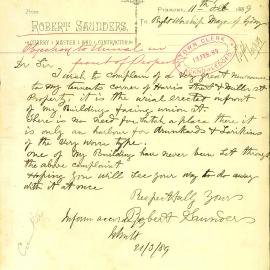 11th Feb 1889
ROBERT SAUNDERS,
QUARRY MASTER AND CONTRACTOR
To Right Worship Mayor of Sydney
TOWN CLERK
13 FEB. 89
Dr Sir
I wish to complain of a great nuisance
to my tenants corner of Harris Street & Mill Street
Property it is the urinal erected in front
of my Buildings facing union St.
There is no need for such a place there it
is only an harbour for drunkards & larikins
of the very worst type.
One of my Building has never been let through
the above complaint
Hoping you will see your way to do away
with it at once
Respectfully Yours
Robert Saunders
21/3/89